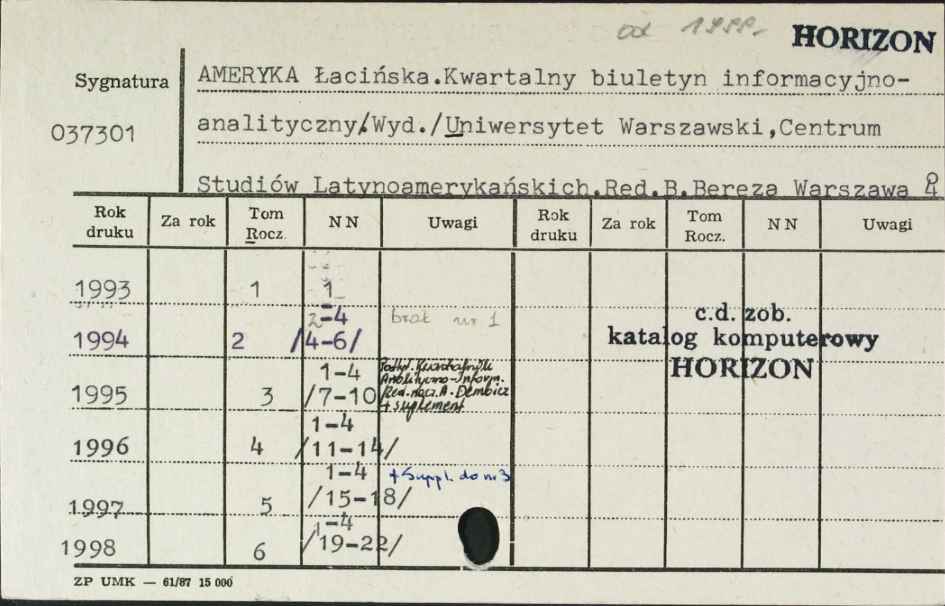 od 1999- HORIZON
Sygnatura AMERYKA Łacińska.Kwartalny biuletyn informacyjno-
037301 analityczny/.Wyd./Uniwersytet Warszawski,Centrum
Studiów Latynoamerykańskich.Red.B.Bereza Warszawa 4
Rok druku Za rok Tom Rocz. NN Uwagi Rok druku Za rok Tom Rocz. NN Uwagi
1993 1 1
1994 2 2-4 /4-6/ brak nr 1
1995 3 1-4 /7-10 Podtyt. Kwartalnik Analityczno-Inform. Red.nacz.A.Dembicz + suplement
1996 4 1-4 /11-14/
1997 5 1-4 /15-18/ + Suppl. do nr 3
1998 6 1-4 /19-22/
c.d. zob.
katalog komputerowy
HORIZON
ZP UMK — 61/87 15 000